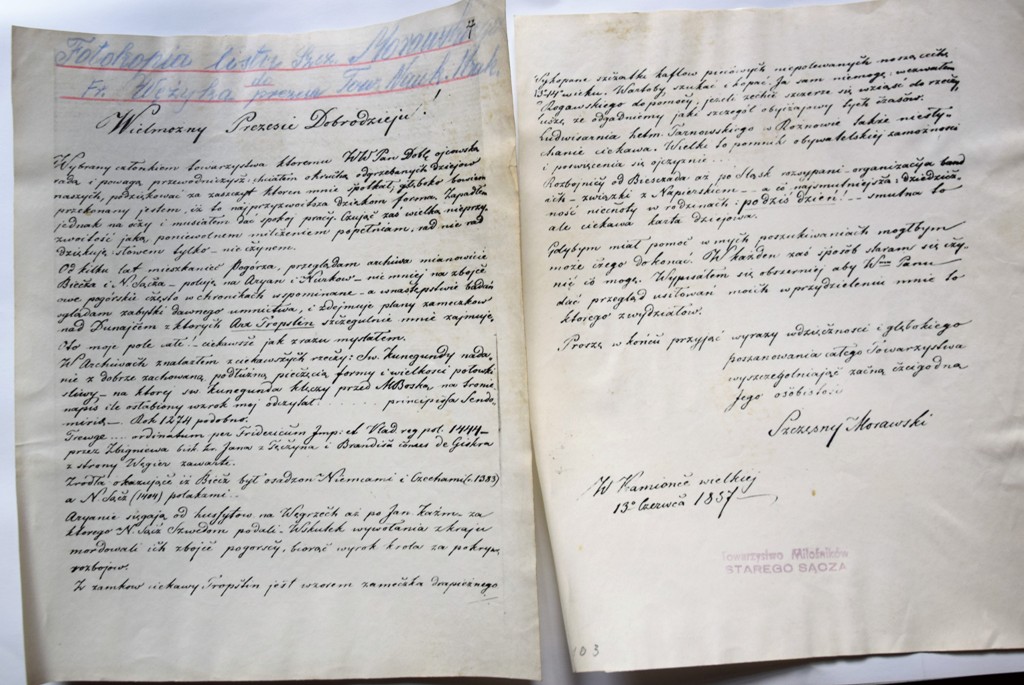 7
Fotokopia listu Szcz. Morawskiego
do
Fr. Wężyka prezesa Tow. Nauk. Krak.
Wielmożny Prezesie Dobrodzieju!
Wybrany członkiem towarzystwa ktoremu WWPan Dobr. ojcowską
radą i powagą przewodniczysz: chciałem okruchą odgrzebanych dziejow
naszych, podziękować za zaszczyt ktoren mnie spotkał, głęboko bowiem
przekonany jestem, iż to najprzyzwoitsza dziękom forma. Zapadłem
jednak na oczy i musiałem dać spokoj pracy. Czując zaś wielką nieprzy-
zwoitość jaką poniewolnem milczeniem popełniam, rad nie rad
dziękuję słowem tylko – nie czynem.
Od kilku lat mieszkaniec Pogórza, przeglądam archiwa mianowicie
Biecza i N. Sącza – poluję na Aryan i Nurkow – nie mniej na zbojce
owe pogórskie często w chronikach wspominane – a w następstwie badań
oglądam zabytki dawnego umnictwa, i zdejmuję plany zameczkow
nad Dunajcem z ktorych Arx Tropstin szczegulnie mnie zajmuje.
Oto moje pole całe! ciekawsze jak zrazu myślałem.
W Archiwach znalazłem z ciekawszych rzeczy: Sw. Kunegundy nada-
nie z dobrze zachowaną podłużną pieczęcią formy i wielkości połowki
śliwy – na ktorej sw. Kunegunda klęczy przed M Boską na tronie
napis ile osłabiony wzrok moj odczytał: . . . . . . . principissa Sendo-
mirie – Rok 1274 podobno.
Treuge .... ordinatum per Fridericum Imp: et Vlad. reg pol. 1444 –
przez Zbigniewa bisk. kr. Jana z Tęczyna i Brandiśa comes de Giskra
z strony Węgier zawarte.
Zrodła okazujące iż Biecz był osadzon Niemcami i Czechami (c 1383)
a N. Sącz (1404) polakami..
Aryanie sięgają od husytow na Węgrzech aż po Jan Kaźm. za
ktorego N. Sącz Szwedom podali. Wskutek wywołania z kraju
mordowali ich zbojce pogorscy, biorąc wyrok krola za pokryw.
rozbojow.
Z zamkow ciekawy Tropstin jest wzorem zameczka drapieżnego
Wykopane szczątki kaflow piecowych niepolewanych noszą cechę
1344 wieku. Wartoby szukać i kopać. Ja sam niemogę: wezwałem
P. Rogawskiego do pomocy; jezeli zechce szczerze się wziąść do rzeczy,
tuszę że odgadniemy jaki szczegoł obyczajowy tych czasow.
Ludwisarnia hetm. Tarnowskiego w Roznowie także niesły-
chanie ciekawa. Wielki to pomnik obywatelskiej zamożności
i poświęcenia się ojczyźnie ...
Rozbojnicy od Bieszczada aż po Sląsk rozsypani – organizacija band
ich – związki z Napierskiem – – a co najsmutniejsza: dziedzicz-
ność niecnoty w rodzinach: po dziś dzień! – – smutna to
ale ciekawa karta dziejowa.
Gdybym miał pomoc w mych poszukiwaniach mogłbym
może czego dokonać. W każden zaś sposob staram się czy-
nić co mogę. Wypisałem się obszerniej aby Wmu Panu
dać przegląd usiłowań moich w przydzieleniu mnie to
ktorego z wydziałow.
Proszę w końcu przyjąć wyrazy wdzięczności i głębokiego
poszanowania całego Towarzystwa
wyszczegolniając zacną czcigodną
Jego osobistość
Szczęsny Morawski
W Kamionce wielkiej
13o Czerwca 1857
Towarzystwo Miłośników
STAREGO SĄCZA
103